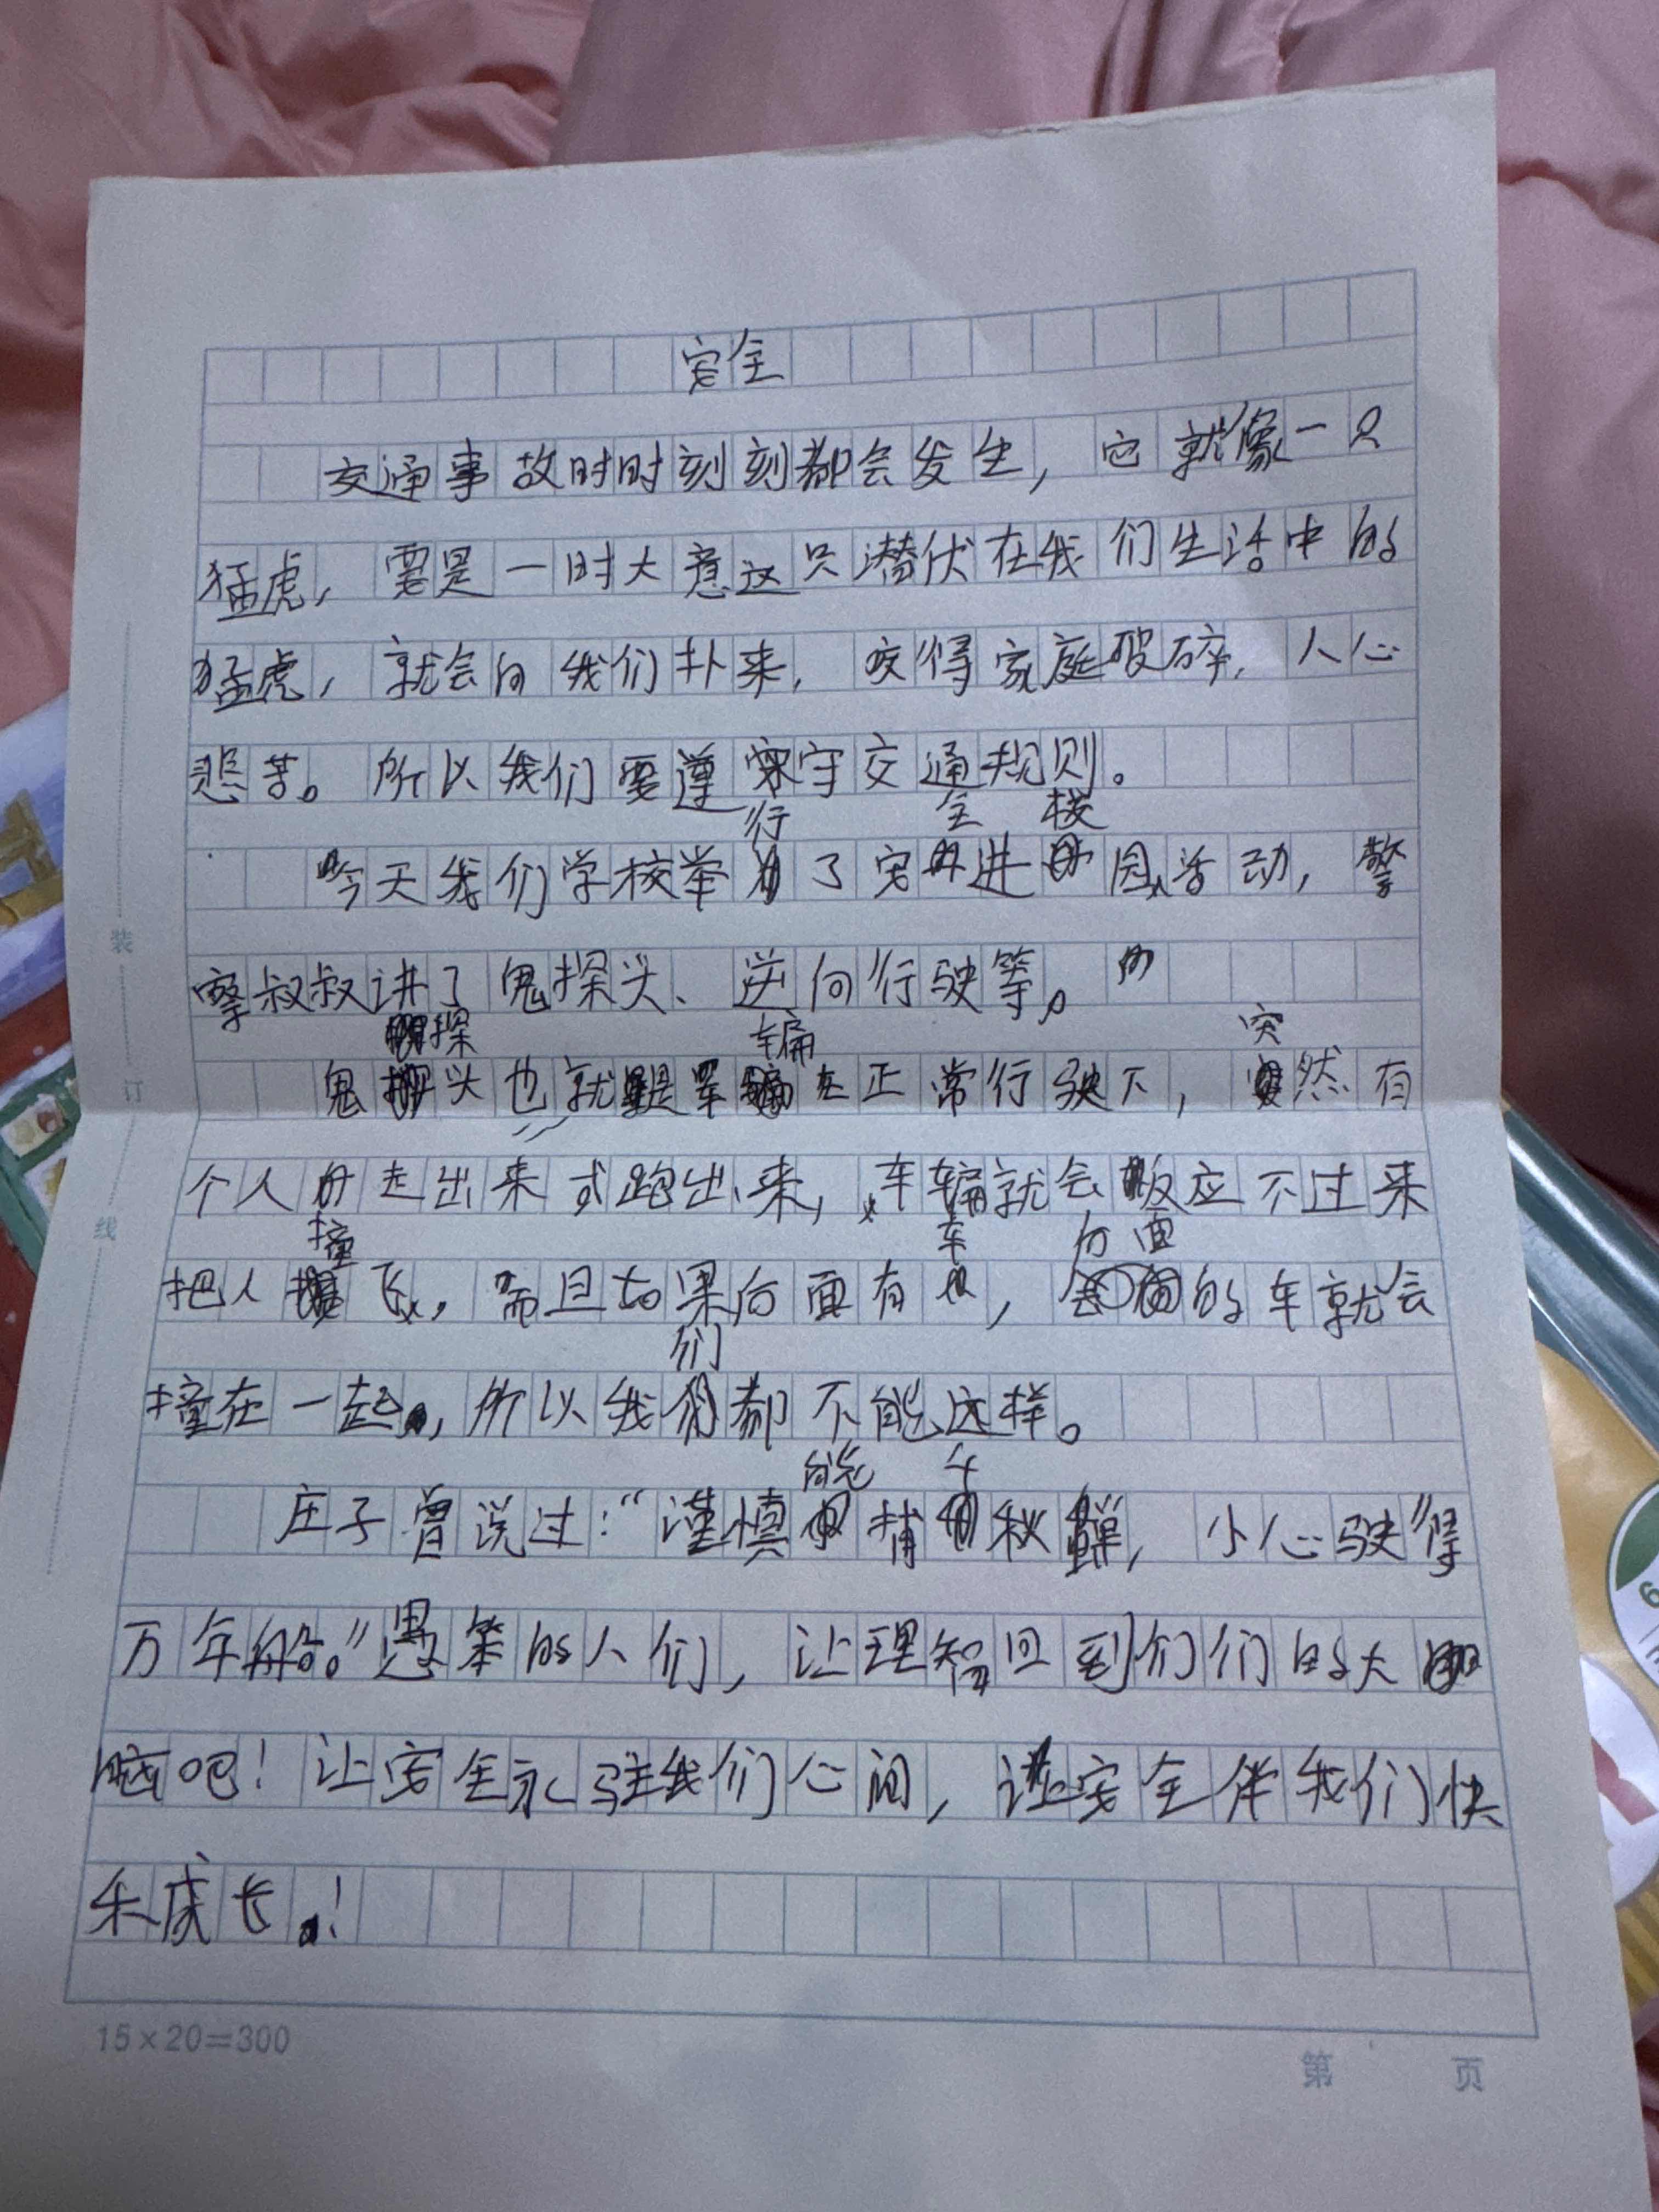 安全
交通事故时时刻刻都会发生，它就像一只
猛虎，要是一时大意这只潜伏在我们生活中的
猛虎，就会向我们扑来，咬得家庭破碎，人心
悲苦。所以我们要遵守交通规则。
今天我们学校举行了安全进校园活动，警
察叔叔讲了鬼探头、逆向行驶等。
鬼探头也就是车辆在正常行驶下，突然有
个人走出来或跑出来，车辆就会反应不过来
把人撞飞，而且如果后面有车，后面的车就会
撞在一起，所以我们都不能这样。
庄子曾说过：“谨慎能捕千秋蝉，小心驶得
万年船。”愚笨的人们，让理智回到们们的大
脑吧！让安全永驻我们心间，让安全伴我们快
乐成长！
装
订
线
15×20=300
第 页